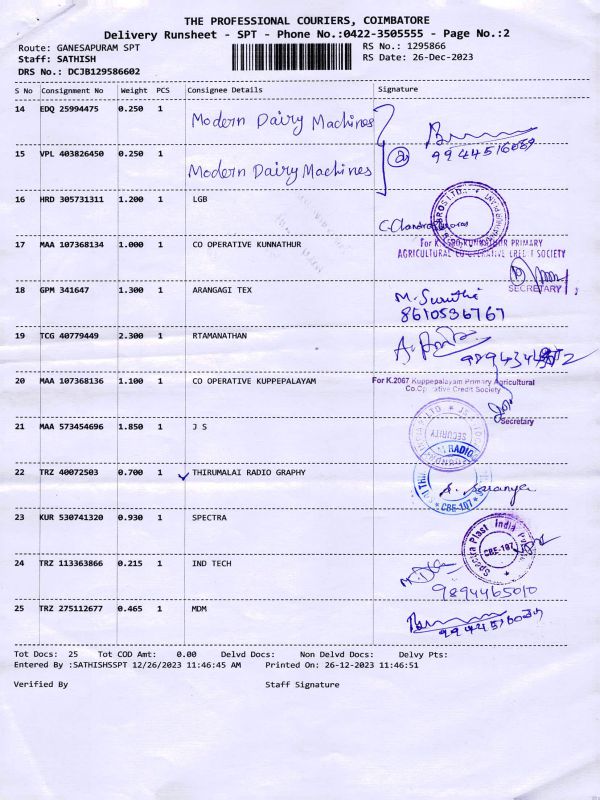 THE PROFESSIONAL COURIERS, COIMBATORE
Delivery Runsheet - SPT - Phone No.:0422-3505555 - Page No.:2
Route: GANESAPURAM SPT RS No.: 1295866
Staff: SATHISH RS Date: 26-Dec-2023
DRS No.: DCJB129586602
S No Consignment No Weight PCS Consignee Details Signature
14 EDQ 25994475 0.250 1 Modern Dairy Machines
15 VPL 403826450 0.250 1 Modern Dairy Machines
16 HRD 305731311 1.200 1 LGB
17 MAA 107368134 1.000 1 CO OPERATIVE KUNNATHUR
PRIMARY
AGRICULTURAL CO-OPERATIVE CREDIT SOCIETY
SECRETARY
18 GPM 341647 1.300 1 ARANGAGI TEX
8610536767
19 TCG 40779449 2.300 1 RTAMANATHAN
20 MAA 107368136 1.100 1 CO OPERATIVE KUPPEPALAYAM For K.2067 Kuppepalayam Primary Agricultural
Co.Operative Credit Society
Secretary
21 MAA 573454696 1.850 1 J S
SECURITY
22 TRZ 40072503 0.700 1 THIRUMALAI RADIO GRAPHY
RADIO
CBE-107
23 KUR 530741320 0.930 1 SPECTRA
Spectra Plast India
CBE-107
24 TRZ 113363866 0.215 1 IND TECH
9894465010
25 TRZ 275112677 0.465 1 MDM
Tot Docs: 25 Tot COD Amt: 0.00 Delvd Docs: Non Delvd Docs: Delvy Pts:
Entered By :SATHISHSSPT 12/26/2023 11:46:45 AM Printed On: 26-12-2023 11:46:51
Verified By Staff Signature